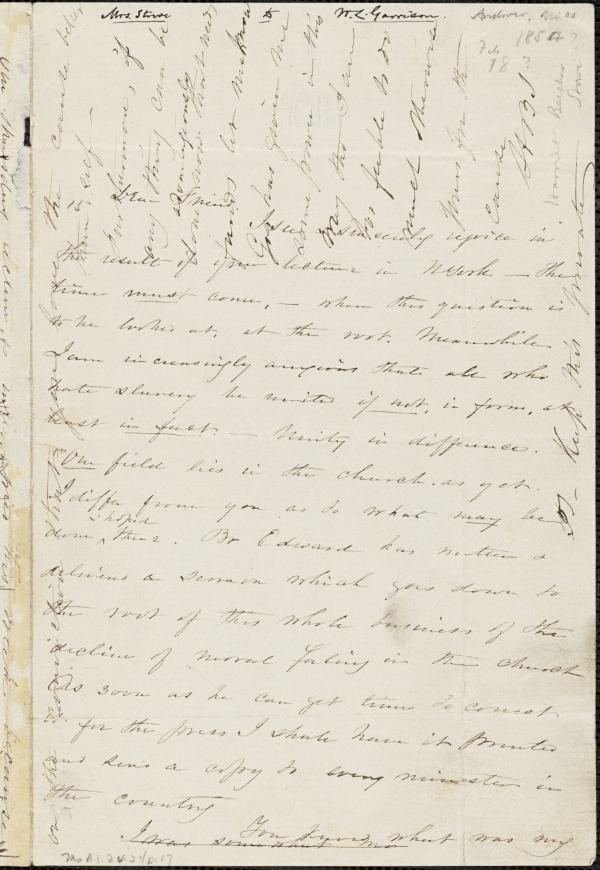 Mrs. Stowe to W. L. Garrison.
Andover, Mass
1854?
Feb
18?
Harriet Beecher
Stowe
Dear Friend
I see & sincerely rejoice in
the result of your lecture in N York — the
time must come, — when this question is
to be looked at, at the root. Meanwhile
I am increasingly anxious that all who
hate slavery be united if not, in form, at
least in fact. — Unity in difference.
Our field lies in the church as yet.
I differ from you as to what may be
done & hoped there. Br Edward has written &
delivered a sermon which goes down to
the root of this whole business of the
decline of moral feeling in the church
As soon as he can get time to correct
it for the press I shall have it printed
and send a copy to every minister in
the country
You know what was my
I was somewhat
Keep this private
the cause better
than self —
if
any they can be
done now that
let me know
God has given me
some power in this
way tho I am
too feeble to do
much otherwise
Yours for the
cause
H B S
Ms. A.1.2 v.24, p.17